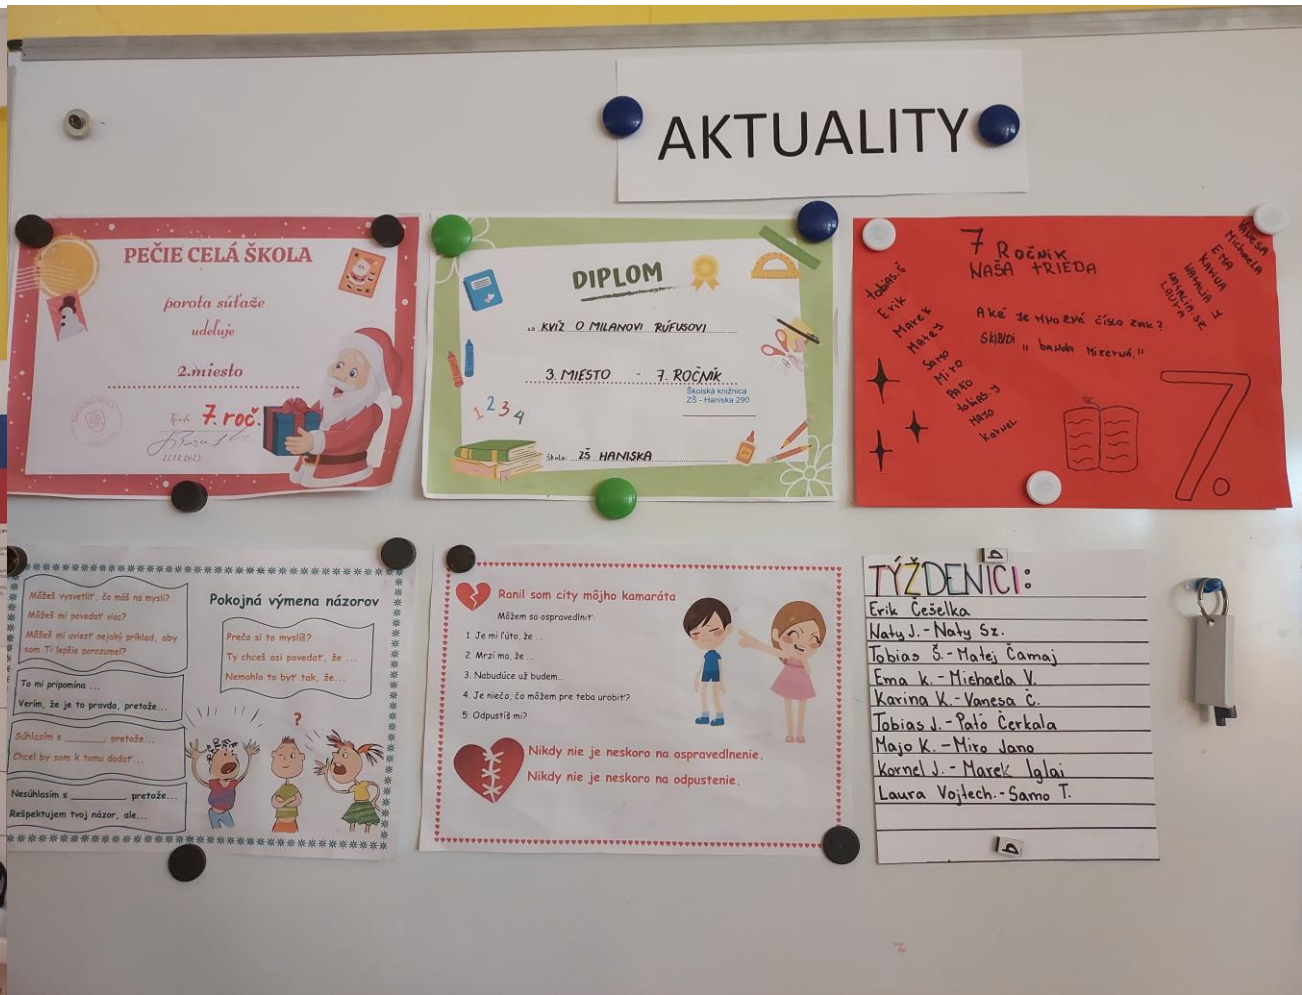 AKTUALITY
PEČIE CELÁ ŠKOLA
porota súťaže
udeľuje
2.miesto
7. roč.
22.12.2023
DIPLOM
za KVÍZ O MILANOVI RÚFUSOVI
3. MIESTO - 7. ROČNÍK
Školská knižnica
ZŠ - Haniska 290
1 2 3 4
Škola: ZŠ HANISKA
7 ROČNÍK
NAŠA TRIEDA
Aké je množné číslo
SKIBIDI " banda mizerná."
tobias.š
Erik
Marek
Matej
Samo
Miro
PAŤO
tobias.J
MAJO
Kornel
VANESA
Michaela
EMA
KARINA
NATÁLIA J
NATALIA.SZ
LAURA
7.
Pokojná výmena názorov
Môžeš vysvetliť, čo máš na mysli?
Môžeš mi povedať viac?
Môžeš mi uviesť nejaký príklad, aby
som Ti lepšie porozumel?
To mi pripomína ...
Verím, že je to pravda, pretože...
Súhlasím s ________ pretože...
Chcel by som k tomu dodať...
Nesúhlasím s ________ pretože...
Rešpektujem tvoj názor, ale...
Prečo si to myslíš?
Ty chceš asi povedať, že ...
Nemohlo to byť tak, že...
?
Ranil som city môjho kamaráta
Môžem sa ospravedlniť:
1. Je mi ľúto, že ...
2. Mrzí ma, že ...
3. Nabudúce už budem...
4. Je niečo, čo môžem pre teba urobiť?
5. Odpustíš mi?
Nikdy nie je neskoro na ospravedlnenie.
Nikdy nie je neskoro na odpustenie.
TÝŽDENÍCI:
Erik Češelka
Naty J. - Naty Sz.
Tobias Š. - Matej Čamaj
Ema K. - Michaela V.
Karina K. - Vanesa Č.
Tobias J. - Paťo Čerkala
Majo K. - Miro Jano
Kornel J. - Marek Iglai
Laura Vojtech. - Samo T.